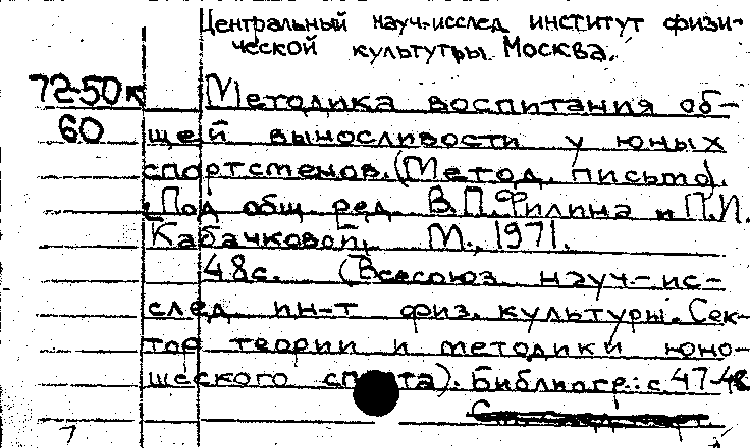 Центральный науч-исслед институт физи-
ческой культутры. Москва.
72-50к Методика воспитания об-
60 щей выносливости у юных
спортсменов. (Метод. письмо).
Под общ. ред. В.П. Филина и П.И.
Кабачковой, М., 1971.
48с. (Всесоюз. науч-ис-
след. ин-т физ. культуры. Сек-
тор теории и методики юно-
шеского спорта). Библиогр.: с. 47-48